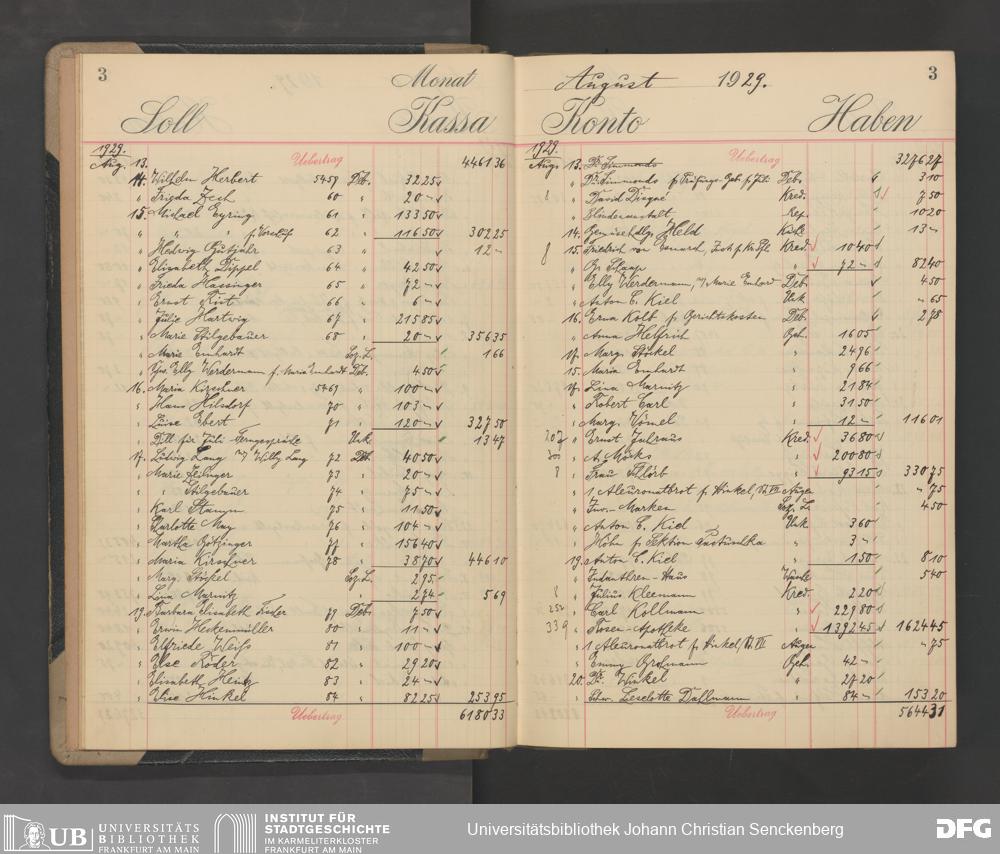 3 Monat
Soll Kassa
1929.
Aug. 13. Uebertrag 4461 36
14. Wilhelm Herbert 5459 Deb. 32 25
" Frieda Zech 60 " 20 -
15. Michael Eyring 61 " 133 50
" " " 62 " 116 50 302 25
" Hedwig Gutjahr 63 " 12 -
" Elisabeth Dippel 64 " 42 50
" Frieda Hassinger 65 " 72 -
" Ernst Kist 66 " 6 -
" Julie Hartwig 67 " 215 85
" Marie Stilgebauer 68 " 20 - 356 35
" Marie Emhardt 1 66
" Elly Werdermann f. Maria Emhardt Deb. 4 50
16. Maria Kirschner 5469 " 100 -
" Hans Hilsdorf 70 " 103 -
" Luise Ebert 71 " 120 - 327 50
" Dill für Juli Ferngespräche Unk. 13 47
17. Ludwig Lang Willy Lang 72 Deb. 40 50
" Marie 73 " 20 -
" " Stilgebauer 74 " 75 -
" Karl Stamm 75 " 11 50
" Charlotte May 76 " 104 -
" Martha Götzinger 77 " 156 40
" Maria Kirschner 78 " 38 70 446 10
" Marg. Stöckel 2 95
" Lina Marnitz " 2 74 5 69
19. Barbara Elisabeth 79 Deb. 7 50
" Erwin Heckenmüller 80 " 11 -
" Elfriede Weiß 81 " 100 -
" Else Röder 82 " 29 20
" Elisabeth Heinz 83 " 24 -
" Else Hinkel 84 " 82 25 253 95
Uebertrag 6180 33
August 1929. 3
Konto Haben
1929.
Aug. 13. Dr. Simmonds Uebertrag 3276 27
" Dr. Simmonds f. Prüfungs-Geb. f. Juli Deb. 3 10
" David Kred. 7 50
" Blindenanstalt Rep. 10 20
14. Held 13 -
15. Friedrich von Kred. 10 40
" " 72 - 82 40
" Elly Werdermann, Marie Emhardt Deb. 4 50
" Anton C. Kiel Unk. - 65
16. Erna Kolb f. Gerichtskosten Deb. 2 78
" Anna Helfrich Geh. 16 05
17. Marg. Stöckel " 24 96
15. Maria Emhardt " 9 66
17. Lina Marnitz " 21 84
" Robert Carl " 31 50
" Marg. Vömel " 12 - 116 01
" Ernst Kred. 36 80
" A. " 200 80
" Frau " 93 15 330 75
" 1 Aleuronatbrot f. Hinkel, - 75
" Inv. - Marken 4 50
" Anton C. Kiel Unk. 3 60
" f. Sektion " 3 -
19. Anton C. Kiel " 1 50 8 10
" Indanthren-Haus 5 40
" Julius Kleemann Kred. 2 20
252 " Carl Kollmann " 229 80
339 " Rosen-Apotheke " 1392 45 1624 45
" 1 Aleuronatbrot f. Hinkel, - 75
" Emmy Geh. 42 -
20. Dr. Winkel " 27 20
" Schw. Leselotte Dallmann " 84 - 153 20
Uebertrag 5644 31
UB UNIVERSITÄTS
BIBLIOTHEK
FRANKFURT AM MAIN
INSTITUT FÜR
STADTGESCHICHTE
IM KARMELITERKLOSTER
FRANKFURT AM MAIN
Universitätsbibliothek Johann Christian Senckenberg
DFG